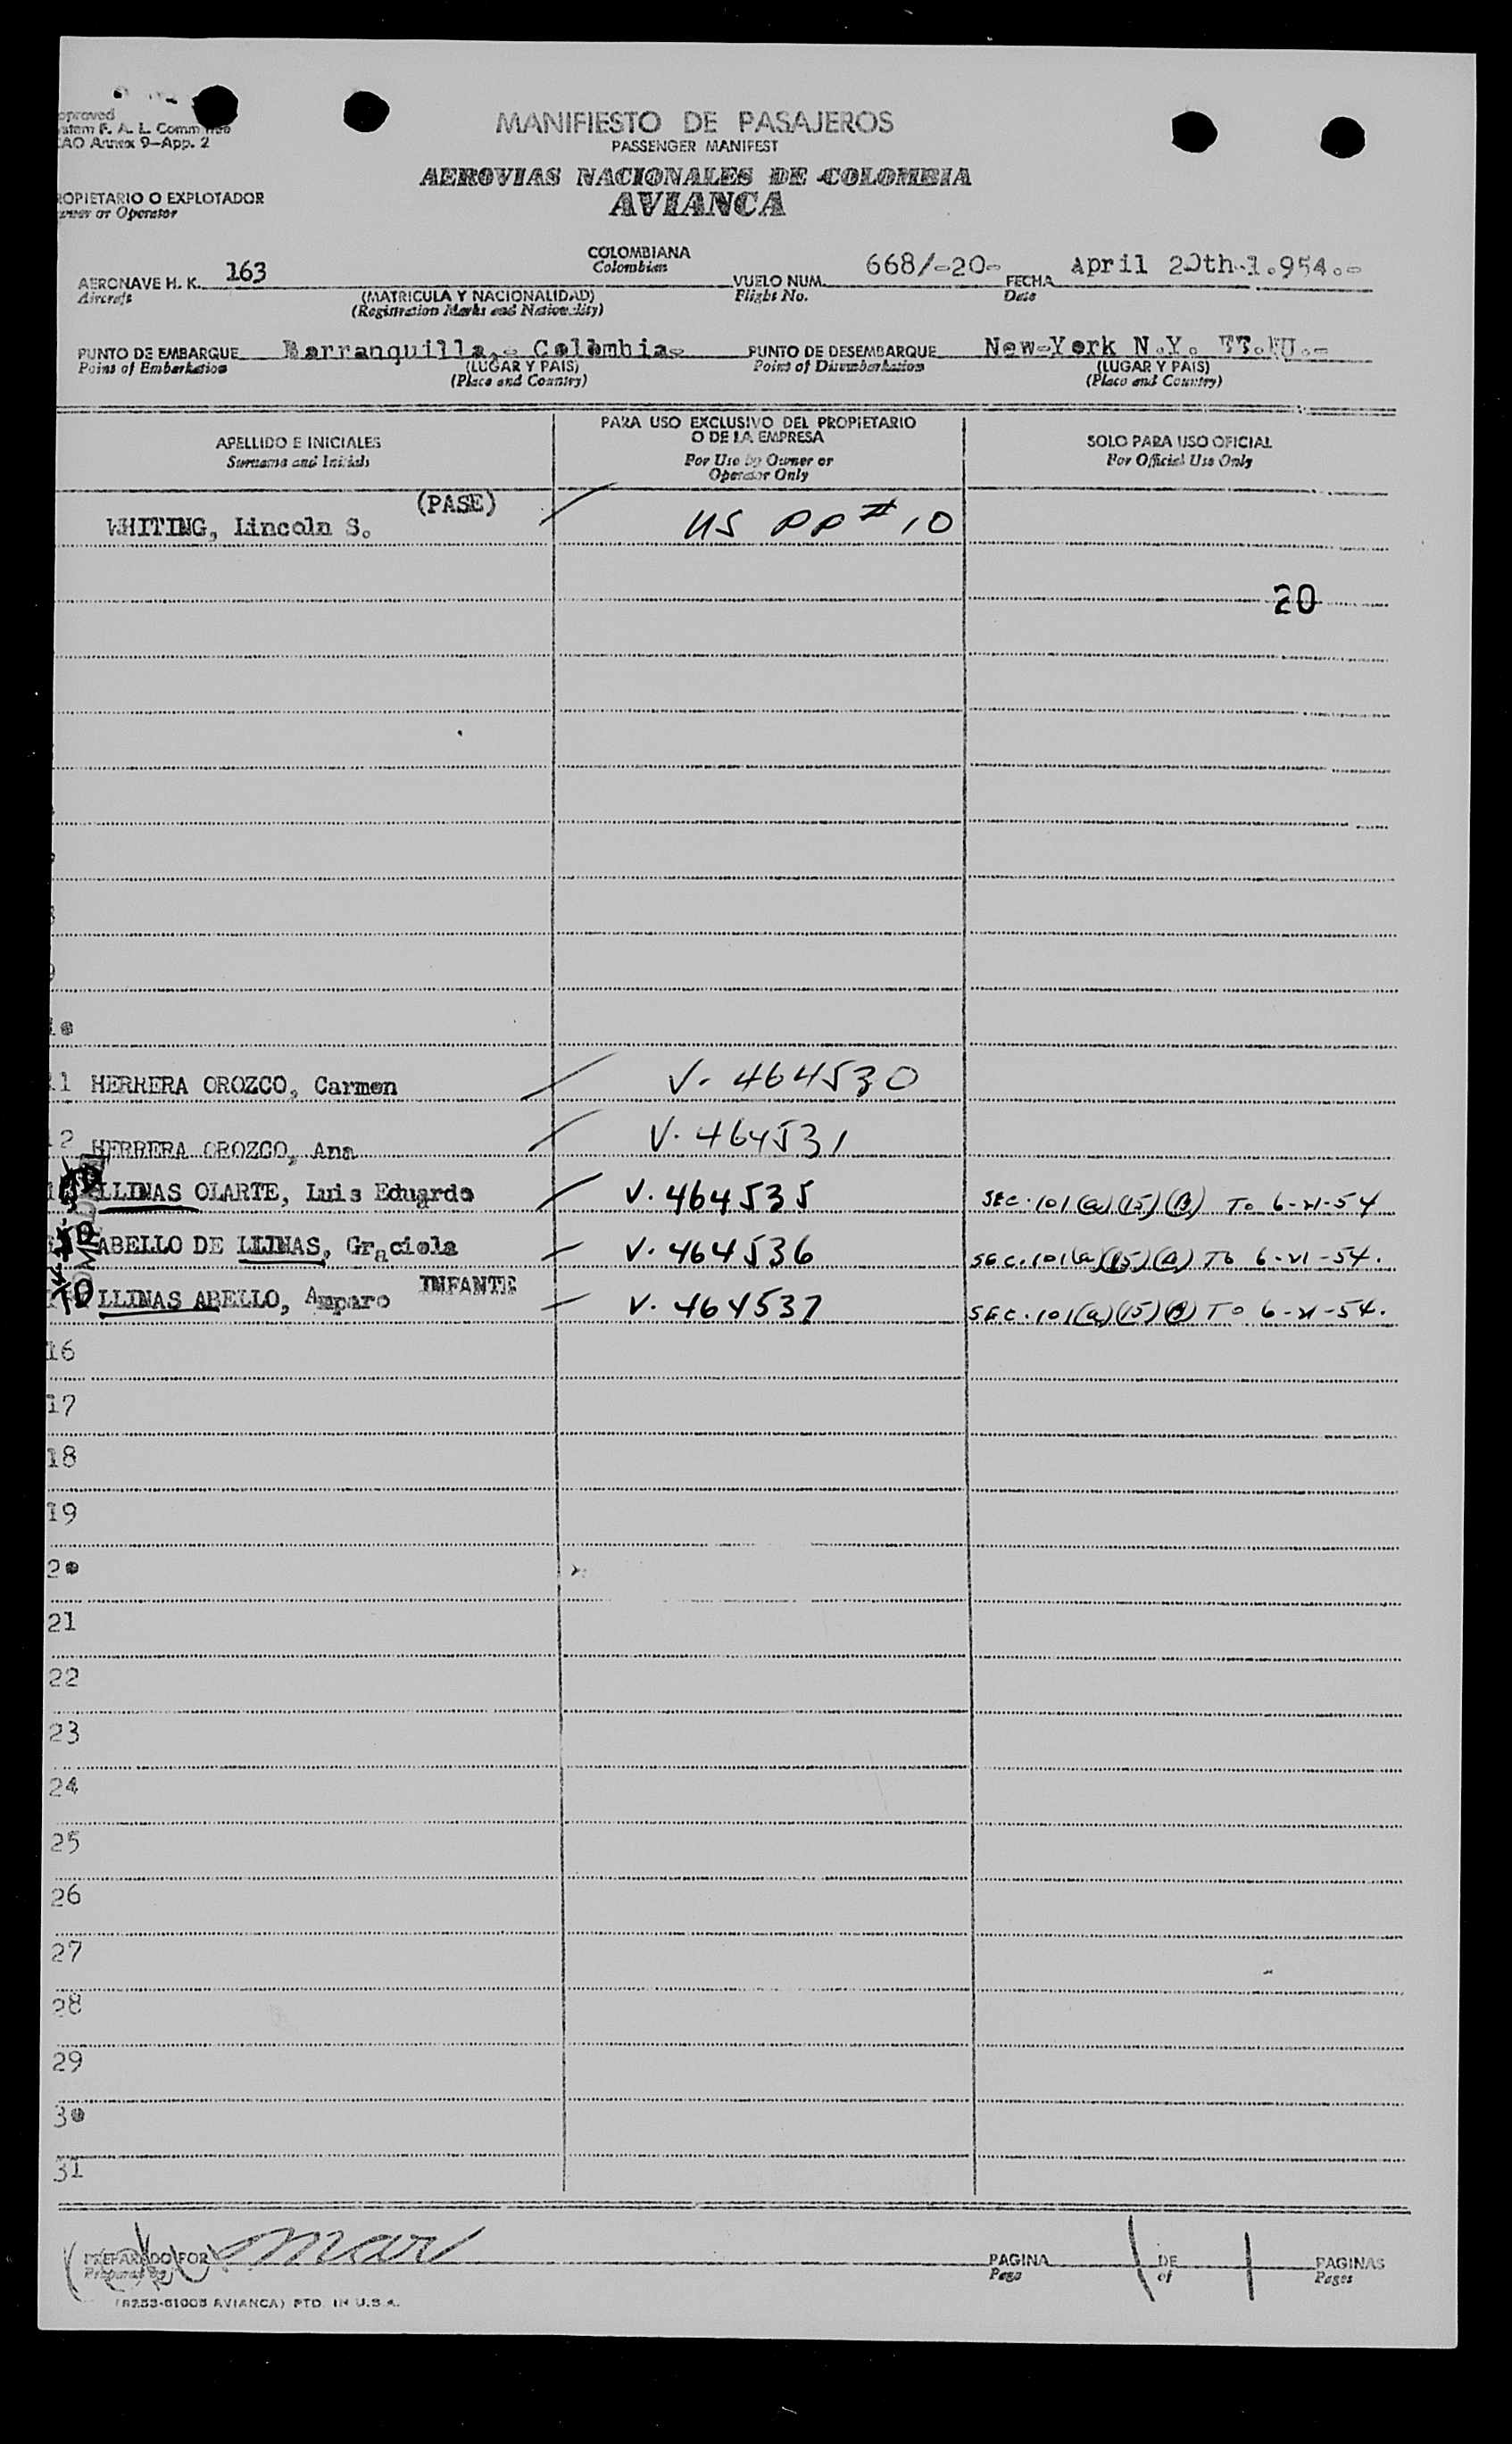 pproved
stem F. A. L. Comm
CAO Annex 9—App. 2
MANIFIESTO DE PASAJEROS
PASSENGER MANIFEST
AEROVIAS NACIONALES DE COLOMBIA
AVIANCA
ROPIETARIO O EXPLOTADOR
wner or Operator
AERONAVE H. K. 163 COLOMBIANA VUELO NUM. 668/-20- FECHA April 20th-1.954.-
Aircraft Colombian Flight No. Date
(MATRICULA Y NACIONALIDAD)
(Registration Marks and Nationality)
PUNTO DE EMBARQUE Barranquilla,- Colombia- PUNTO DE DESEMBARQUE New-York N.Y. EE.UU.-
Point of Embarkation (LUGAR Y PAIS) Point of Disembarkation (LUGAR Y PAIS)
(Place and Country) (Place and Country)
APELLIDO E INICIALES PARA USO EXCLUSIVO DEL PROPIETARIO O DE LA EMPRESA SOLO PARA USO OFICIAL
Surname and Initials For Use by Owner or Operator Only For Official Use Only
(PASE)
WHITING, Lincoln S. / US PP # 10
20
11 HERRERA OROZCO, Carmen / V. 464530
12 HERRERA OROZCO, Ana / V. 464531
LLINAS OLARTE, Luis Eduardo / V. 464535 SEC. 101(a)(15)(B) To 6-21-54
ABELLO DE LLINAS, Graciela V. 464536 SEC. 101(a)(15)(B) To 6-21-54.
LLINAS ABELLO, Amparo INFANTE V. 464537 SEC. 101(a)(15)(B) To 6-21-54.
16
17
18
19
20
21
22
23
24
25
26
27
28
29
30
31
PREPARADO POR PAGINA 1 DE 1 PAGINAS
Prepared by Page of Pages
(8253-61005 AVIANCA) PTD. IN U.S.A.